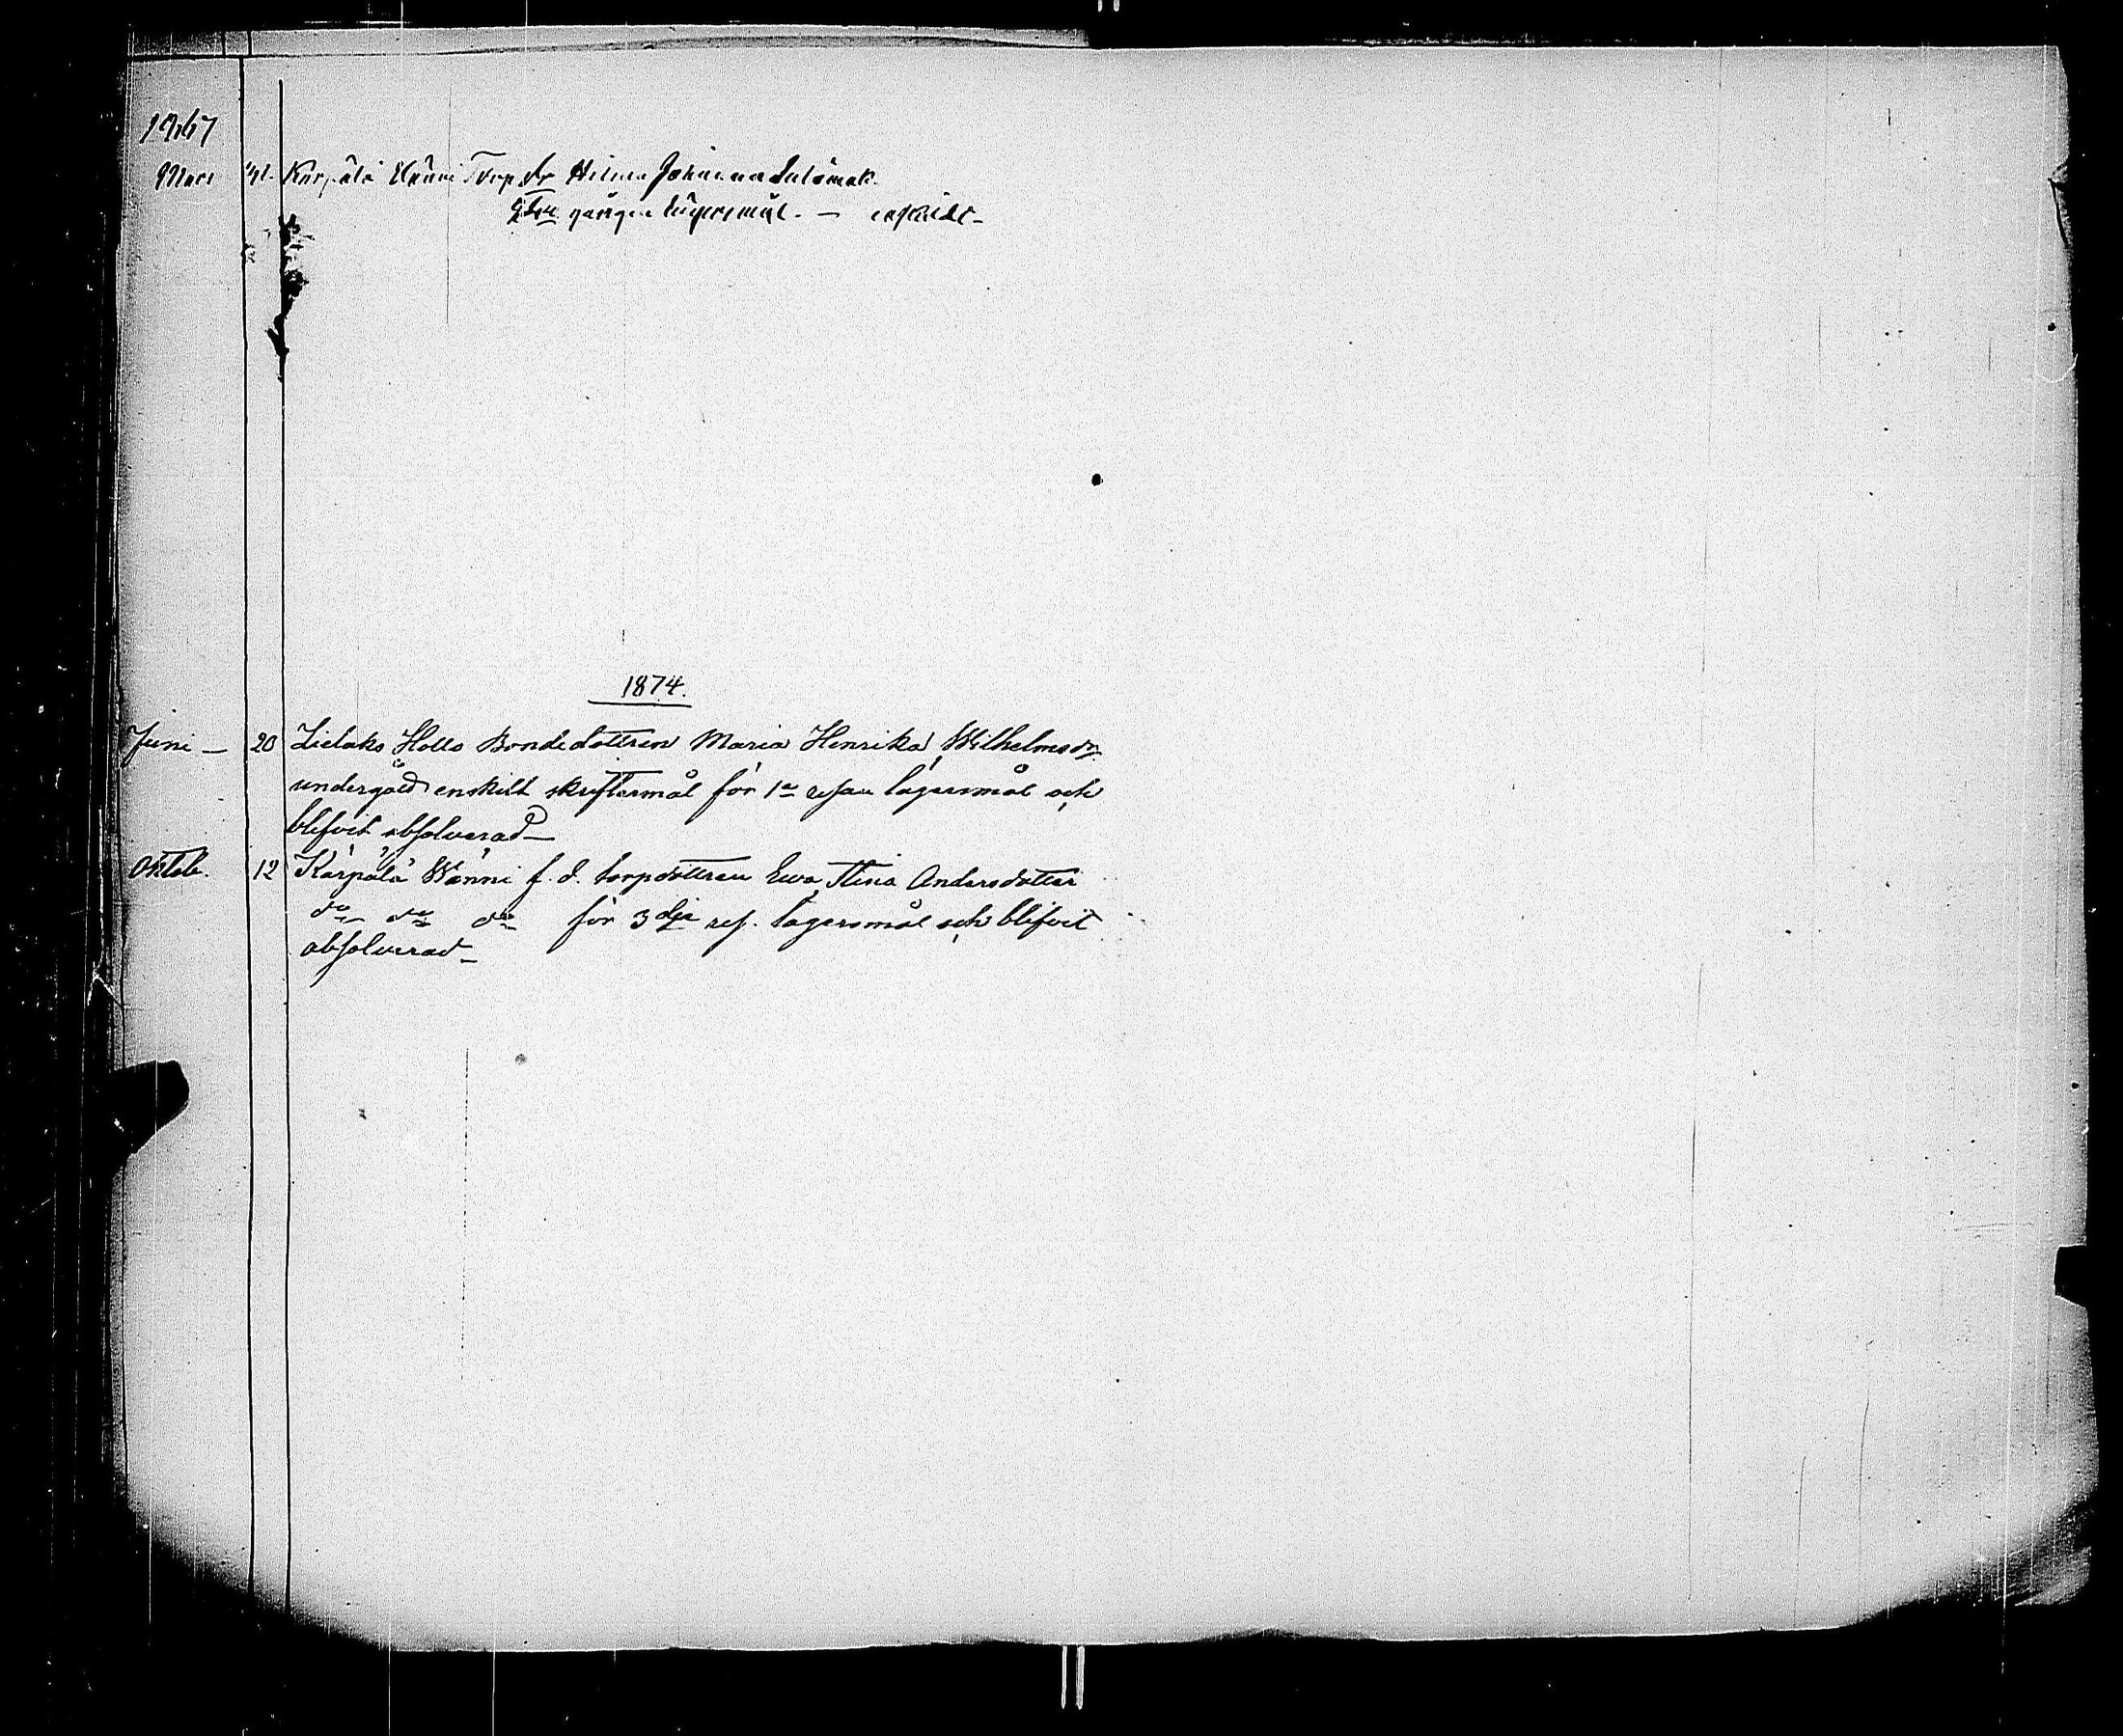 1867
Mars Kärpälä Wänni Torp dr Hilma Johanna
2dra gången lägersmål. — enskildt —
1874.
Juni — 20 Lielaks Hollo Bondedottren Maria Henrika Wilhelmsdr
undergåd enskilt skriftermål för 1a resan lägersmål och
blifvit absolverad —
Oktob. 12 Kärpälä Wänni f. d. torpdottren Ewa Stina Andersdotter
do do do för 3dje res. lägersmål och blifvit
absolverad —